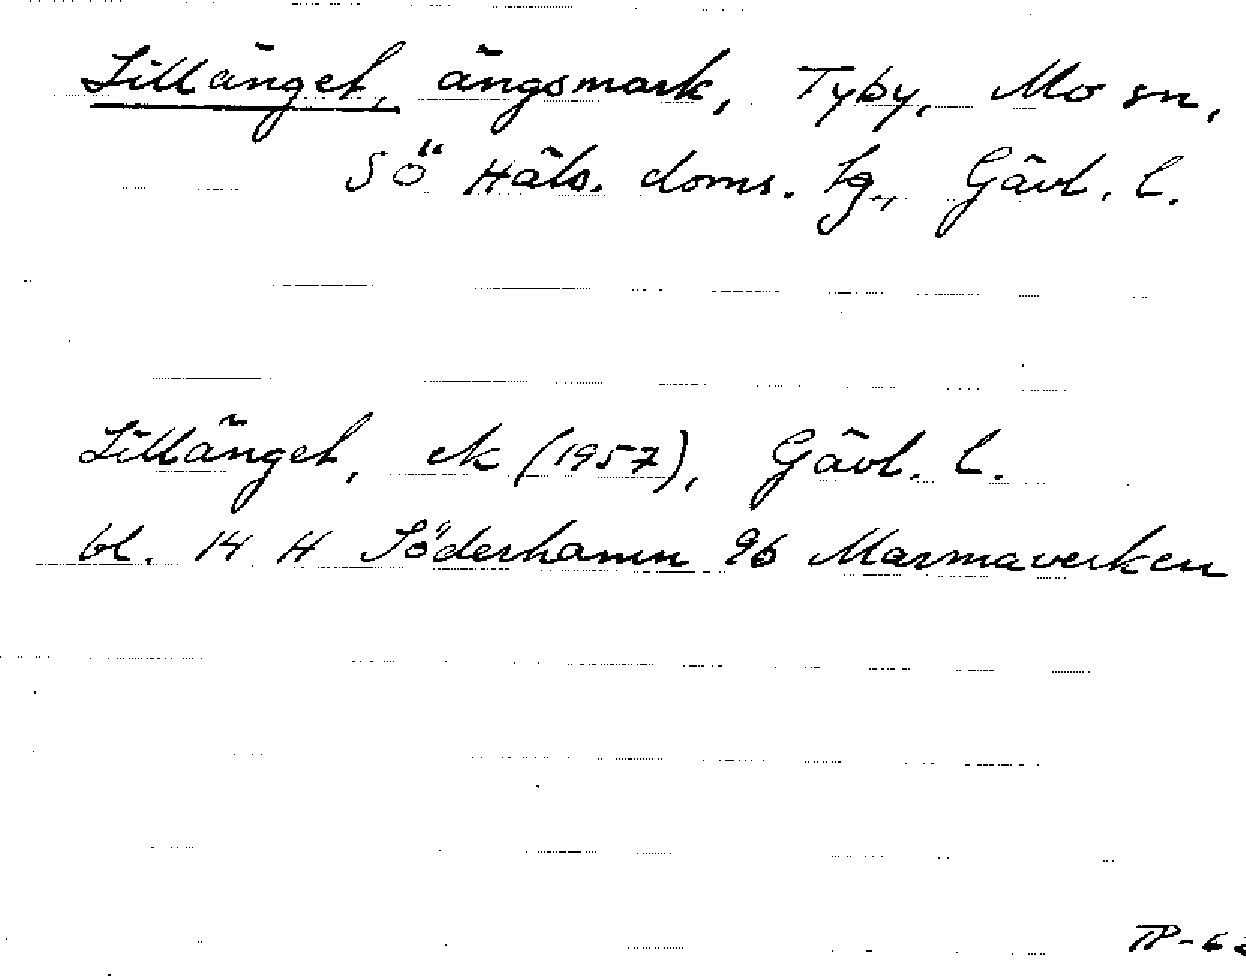 Lillänget, ängsmark, Tyby, Mo sn,
Sö Häls. doms. tg., Gävl. l.
Lillänget, ek (1957), Gävl. l.
bl. 14 H Söderhamn 9b Marmaverken
TP-62